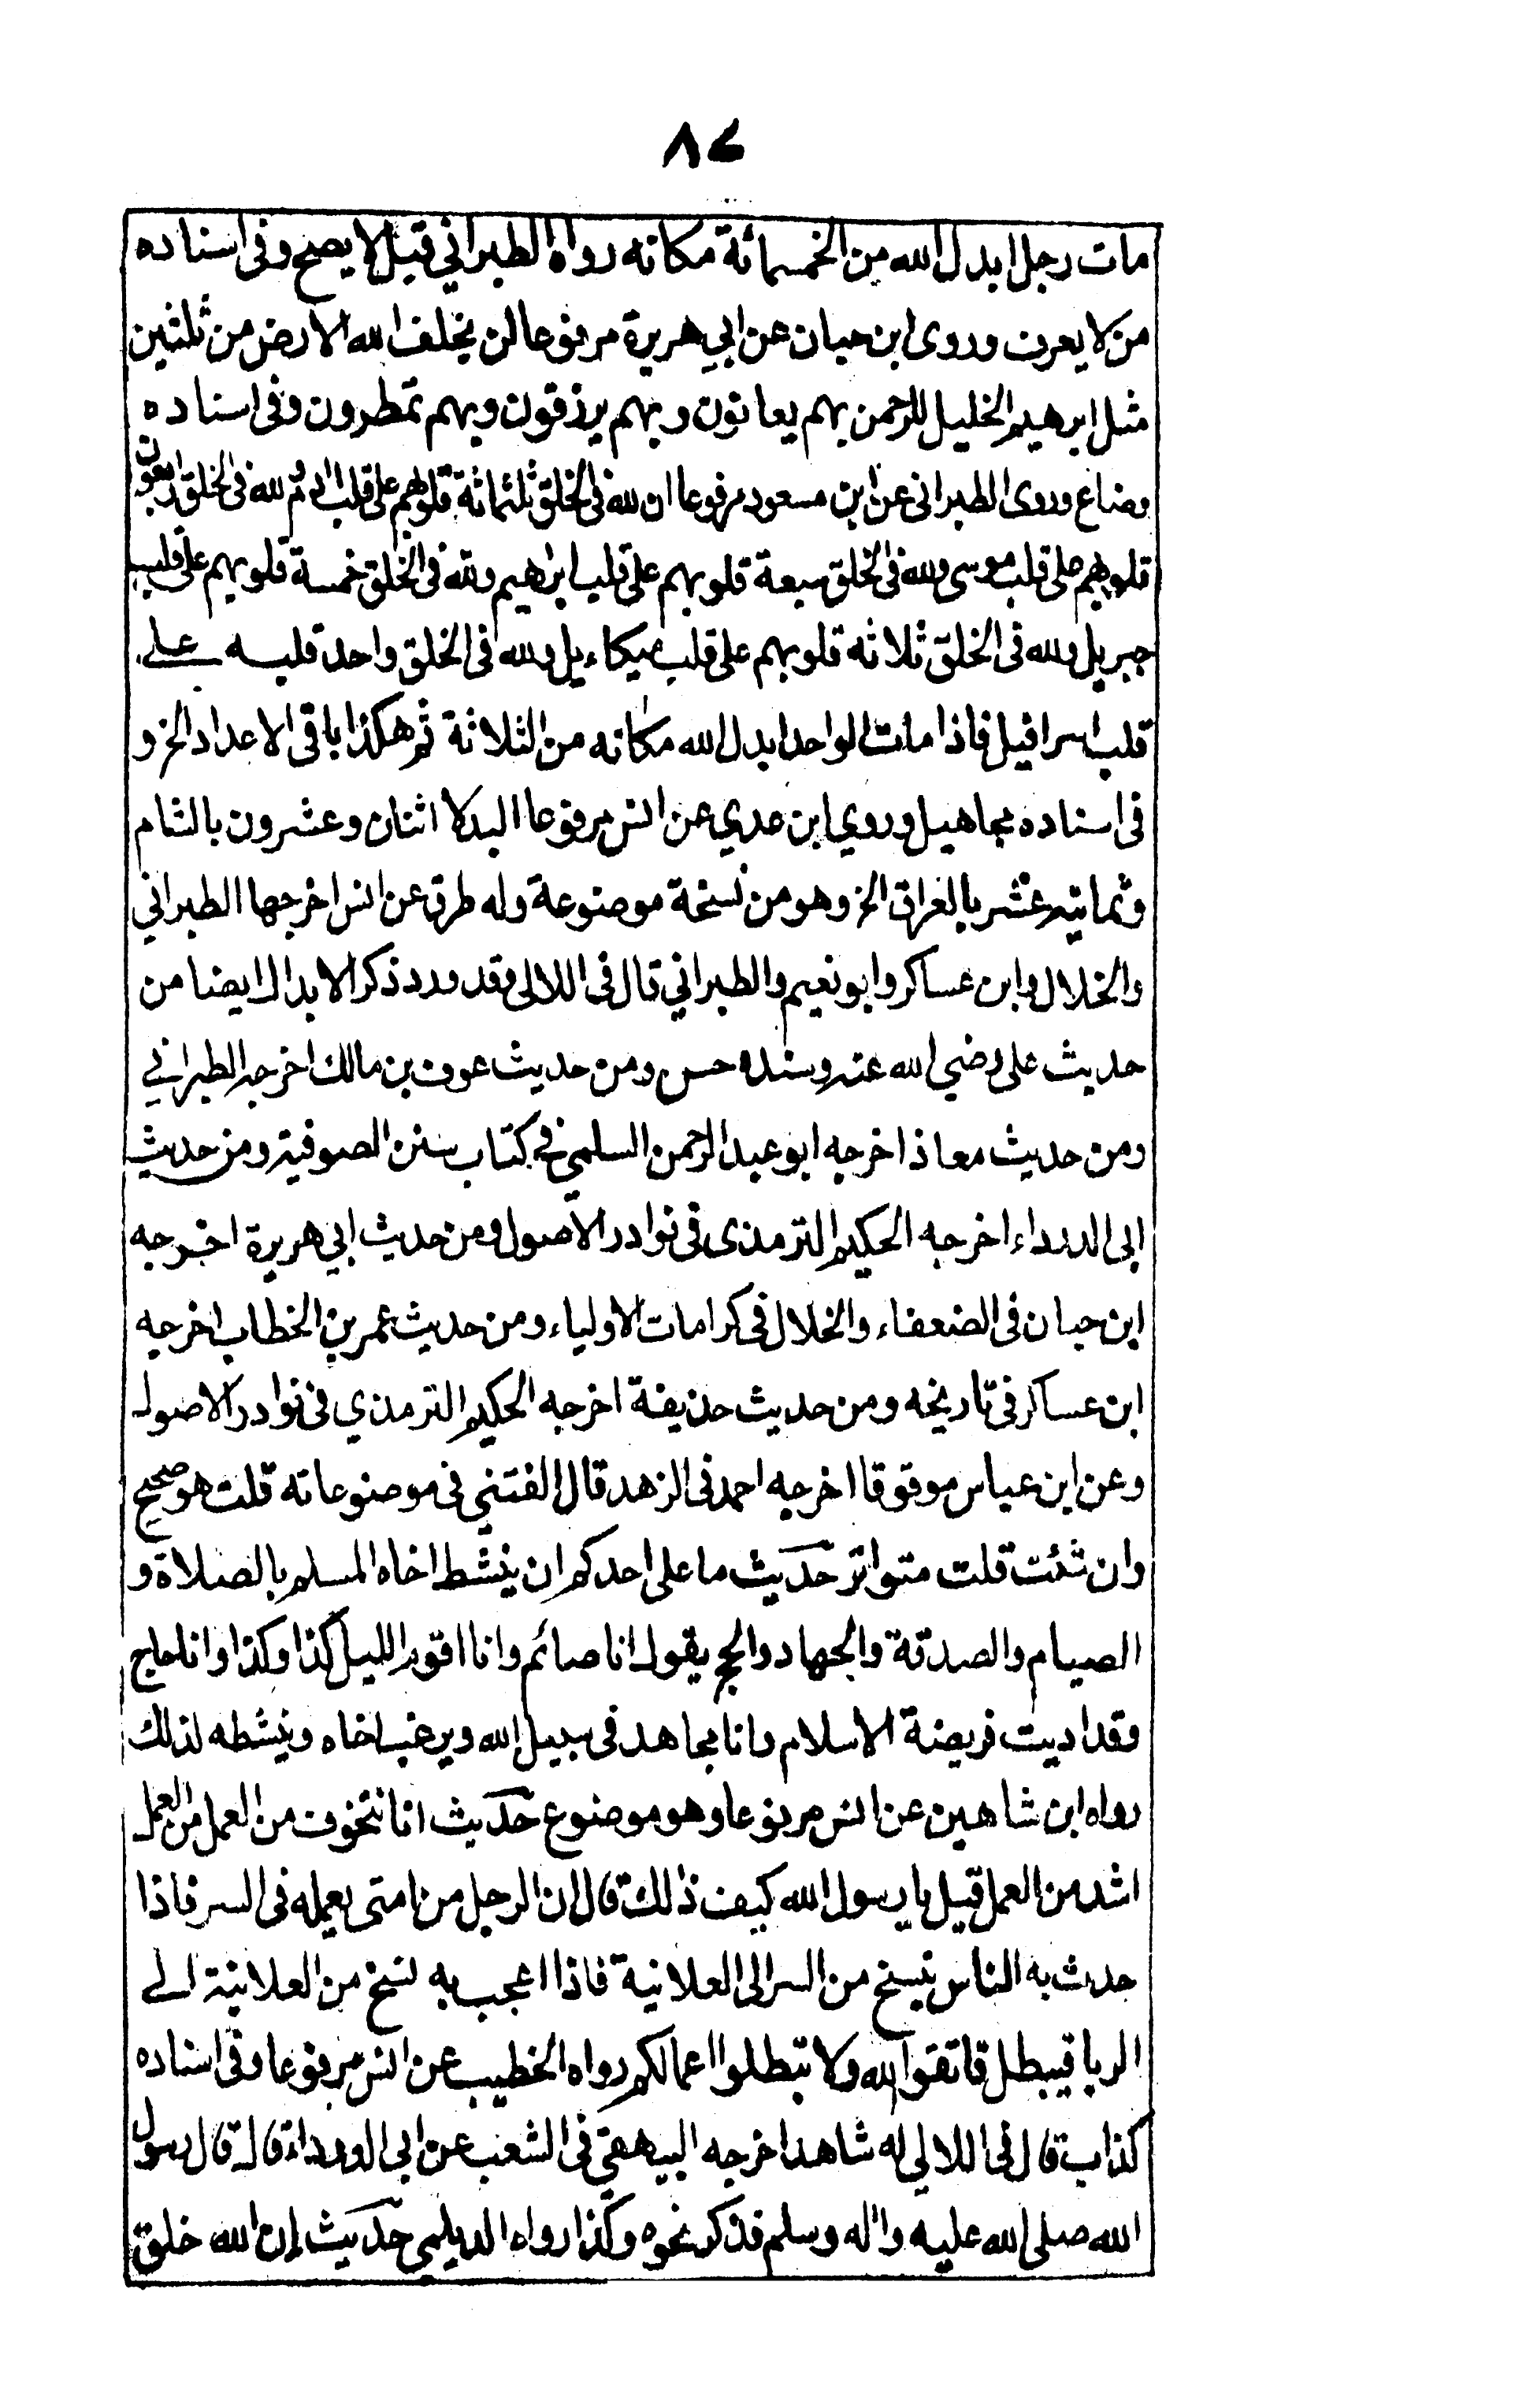 ٨٤
مات رجل ابدل الله من الخمسمائة مكانه رواه الطبراني قيل لا يصح وفى اسناده
من لا يعرف وروى ابن حبان عن ابي هريرة مرفوعا لن يخلف الله الارض من ثلثين
مثل ابرهيم الخليل للرحمن بهم يعانون وبهم يرزقون وبهم تمطرون وفى اسناده
وضاع وروى الطبرانى عن ابن مسعود مرفوعا ان لله فى الخلق ثلثمائة قلوبهم على قلب ادم ولله فى الخلق اربعون
قلوبهم على قلب موسى ولله فى الخلق سبعة قلوبهم على قلب ابراهيم ولله فى الخلق خمسة قلوبهم على قلب
جبريل ولله فى الخلق ثلاثة قلوبهم على قلب ميكاءيل ولله فى الخلق واحد قلبه على
قلب اسرافيل فاذا مات الواحد ابدل الله مكانه من الثلاثة ثم هكذا باقى الاعداد الخ و
فى اسناده مجاهيل وروي ابن عدي عن انس مرفوعا البدلا اثنان وعشرون بالشام
وثمانية عشر بالعراق الخ وهو من نسخة موضوعة وله طرق عن انس اخرجها الطبراني
والخلال وابن عساكر وابو نعيم والطبراني قال فى اللالى وقد ورد ذكر الابدال ايضا من
حديث على رضي الله عنه وسنده حسن ومن حديث عوف بن مالك اخرجه الطبراني
ومن حديث معاذ اخرجه ابو عبد الرحمن السلمي في كتاب سنن الصوفية ومن حديث
ابى الدرداء اخرجه الحكيم الترمذى فى نوادر الاصول ومن حديث ابي هريرة اخرجه
ابن حبان فى الضعفاء والخلال فى كرامات الاولياء ومن حديث عمر بن الخطاب اخرجه
ابن عساكر فى تاريخه ومن حديث حذيفة اخرجه الحكيم الترمذي فى نوادر الاصول
وعن ابن عباس موقوفا اخرجه احمد فى الزهد قال الفتني فى موضوعاته قلت هو صحيح
وان شئت قلت متواتر حديث ما على احدكم ان ينشط اخاه المسلم بالصلاة و
الصيام والصدقة والجهاد والحج يقول انا صائم وانا اقوم الليل كذا وكذا وانا حاج
وقد اديت فريضة الاسلام وانا مجاهد فى سبيل الله ويرغب اخاه وينشطه لذلك
رواه ابن شاهين عن انس مرفوعا وهو موضوع حديث انا نتخوف من العمل من العمل
اشد من العمل قيل يا رسول الله كيف ذالك قال ان الرجل من امتى يعمله فى السر فاذا
حدث به الناس ينسخ من السر الى العلانية فاذا اعجب به نسخ من العلانية الى
الريا فيبطل فاتقوا الله ولا تبطلوا اعمالكم رواه الخطيب عن انس مرفوعا وفى اسناده
كذاب قال فى اللالي له شاهد اخرجه البيهقي فى الشعب عن ابى الدرداء قال قال رسول
الله صلى الله عليه واله وسلم فذكر نحوه وكذا رواه الديلمي حديث إن الله خلق